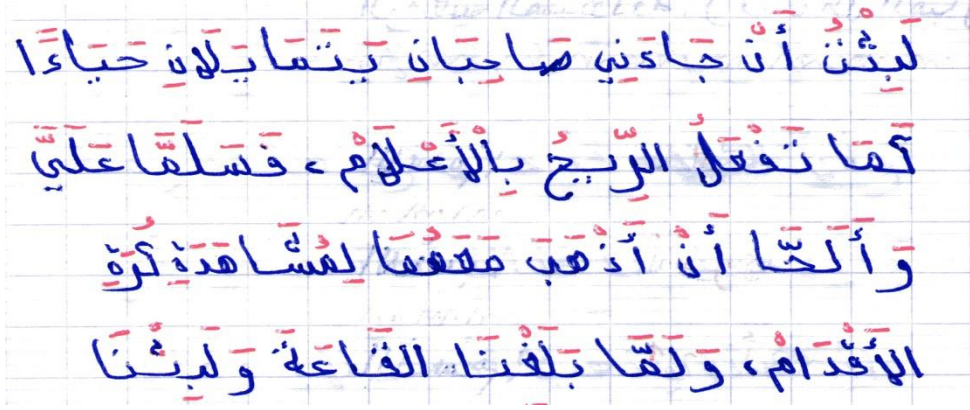 لَبِثْنُ أَنْ جَاءَنِي صَاحِبَانِ يَتَمَايَلَانِ حَيَاءًا
كَمَا تَفْعَلُ الرِّيحُ بِالْأَعْلَامْ، فَسَلَّمَا عَلَيَّ
وَأَلَحَّا أَنْ أَذْهَبَ مَعَهُمَا لِمُشَاهَدَةِ كُرَةِ
الْأَقْدَامْ، وَلَمَّا بَلَغْنَا القَاعَةَ وَلَبِثْنَا